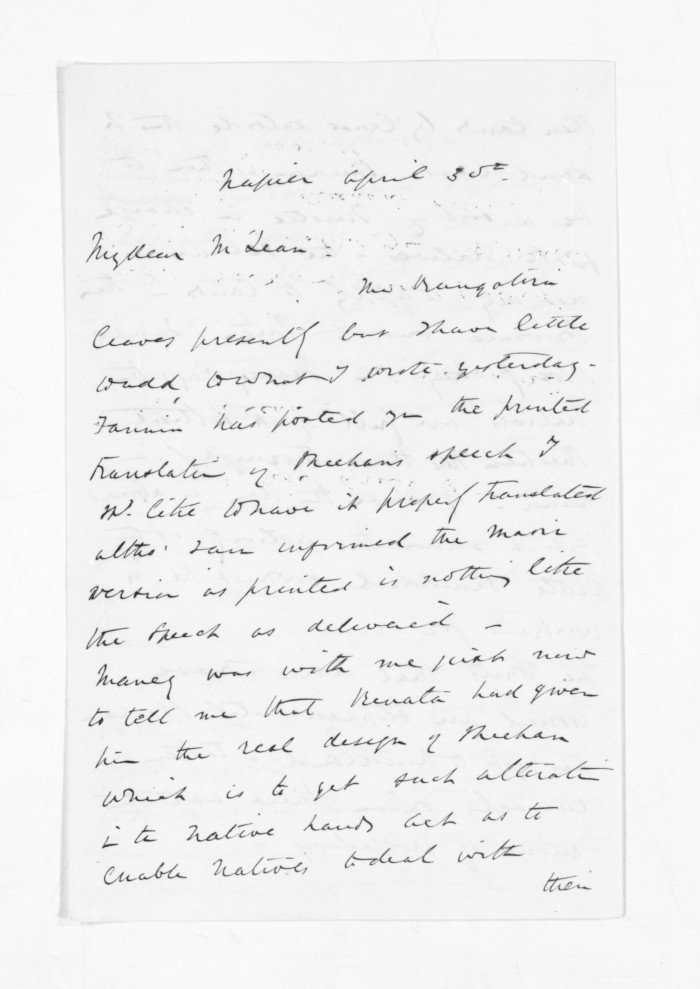 Napier April 30th.
My dear McLean.
The Rangatira
leaves presently but I have little
to add to what I wrote yesterday -
Fannin has posted you the printed
translation of Sheehans speech I
shd. like to have it properly translated
altho' I am informed the Maori
version as printed is nothing like
the speech as delivered -
Maney was with me just now
to tell me that Renata had given
him the real design of Sheehan
which is to get such alteration
in the Native Lands Act as to
enable Natives to deal with
their